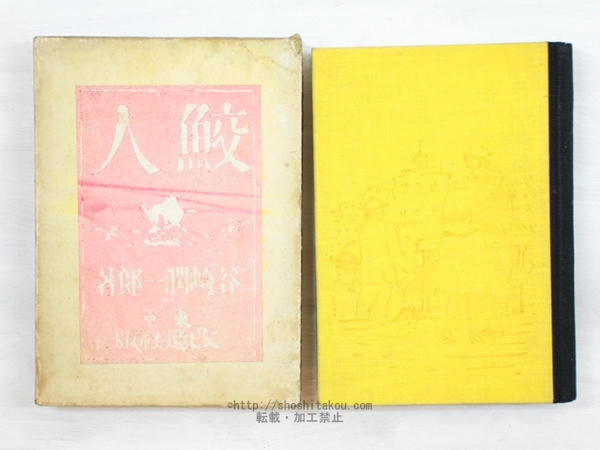 鮫人
谷崎潤一郎著
東京
改造社版
©http://shoshitakou.com/
転載・加工禁止